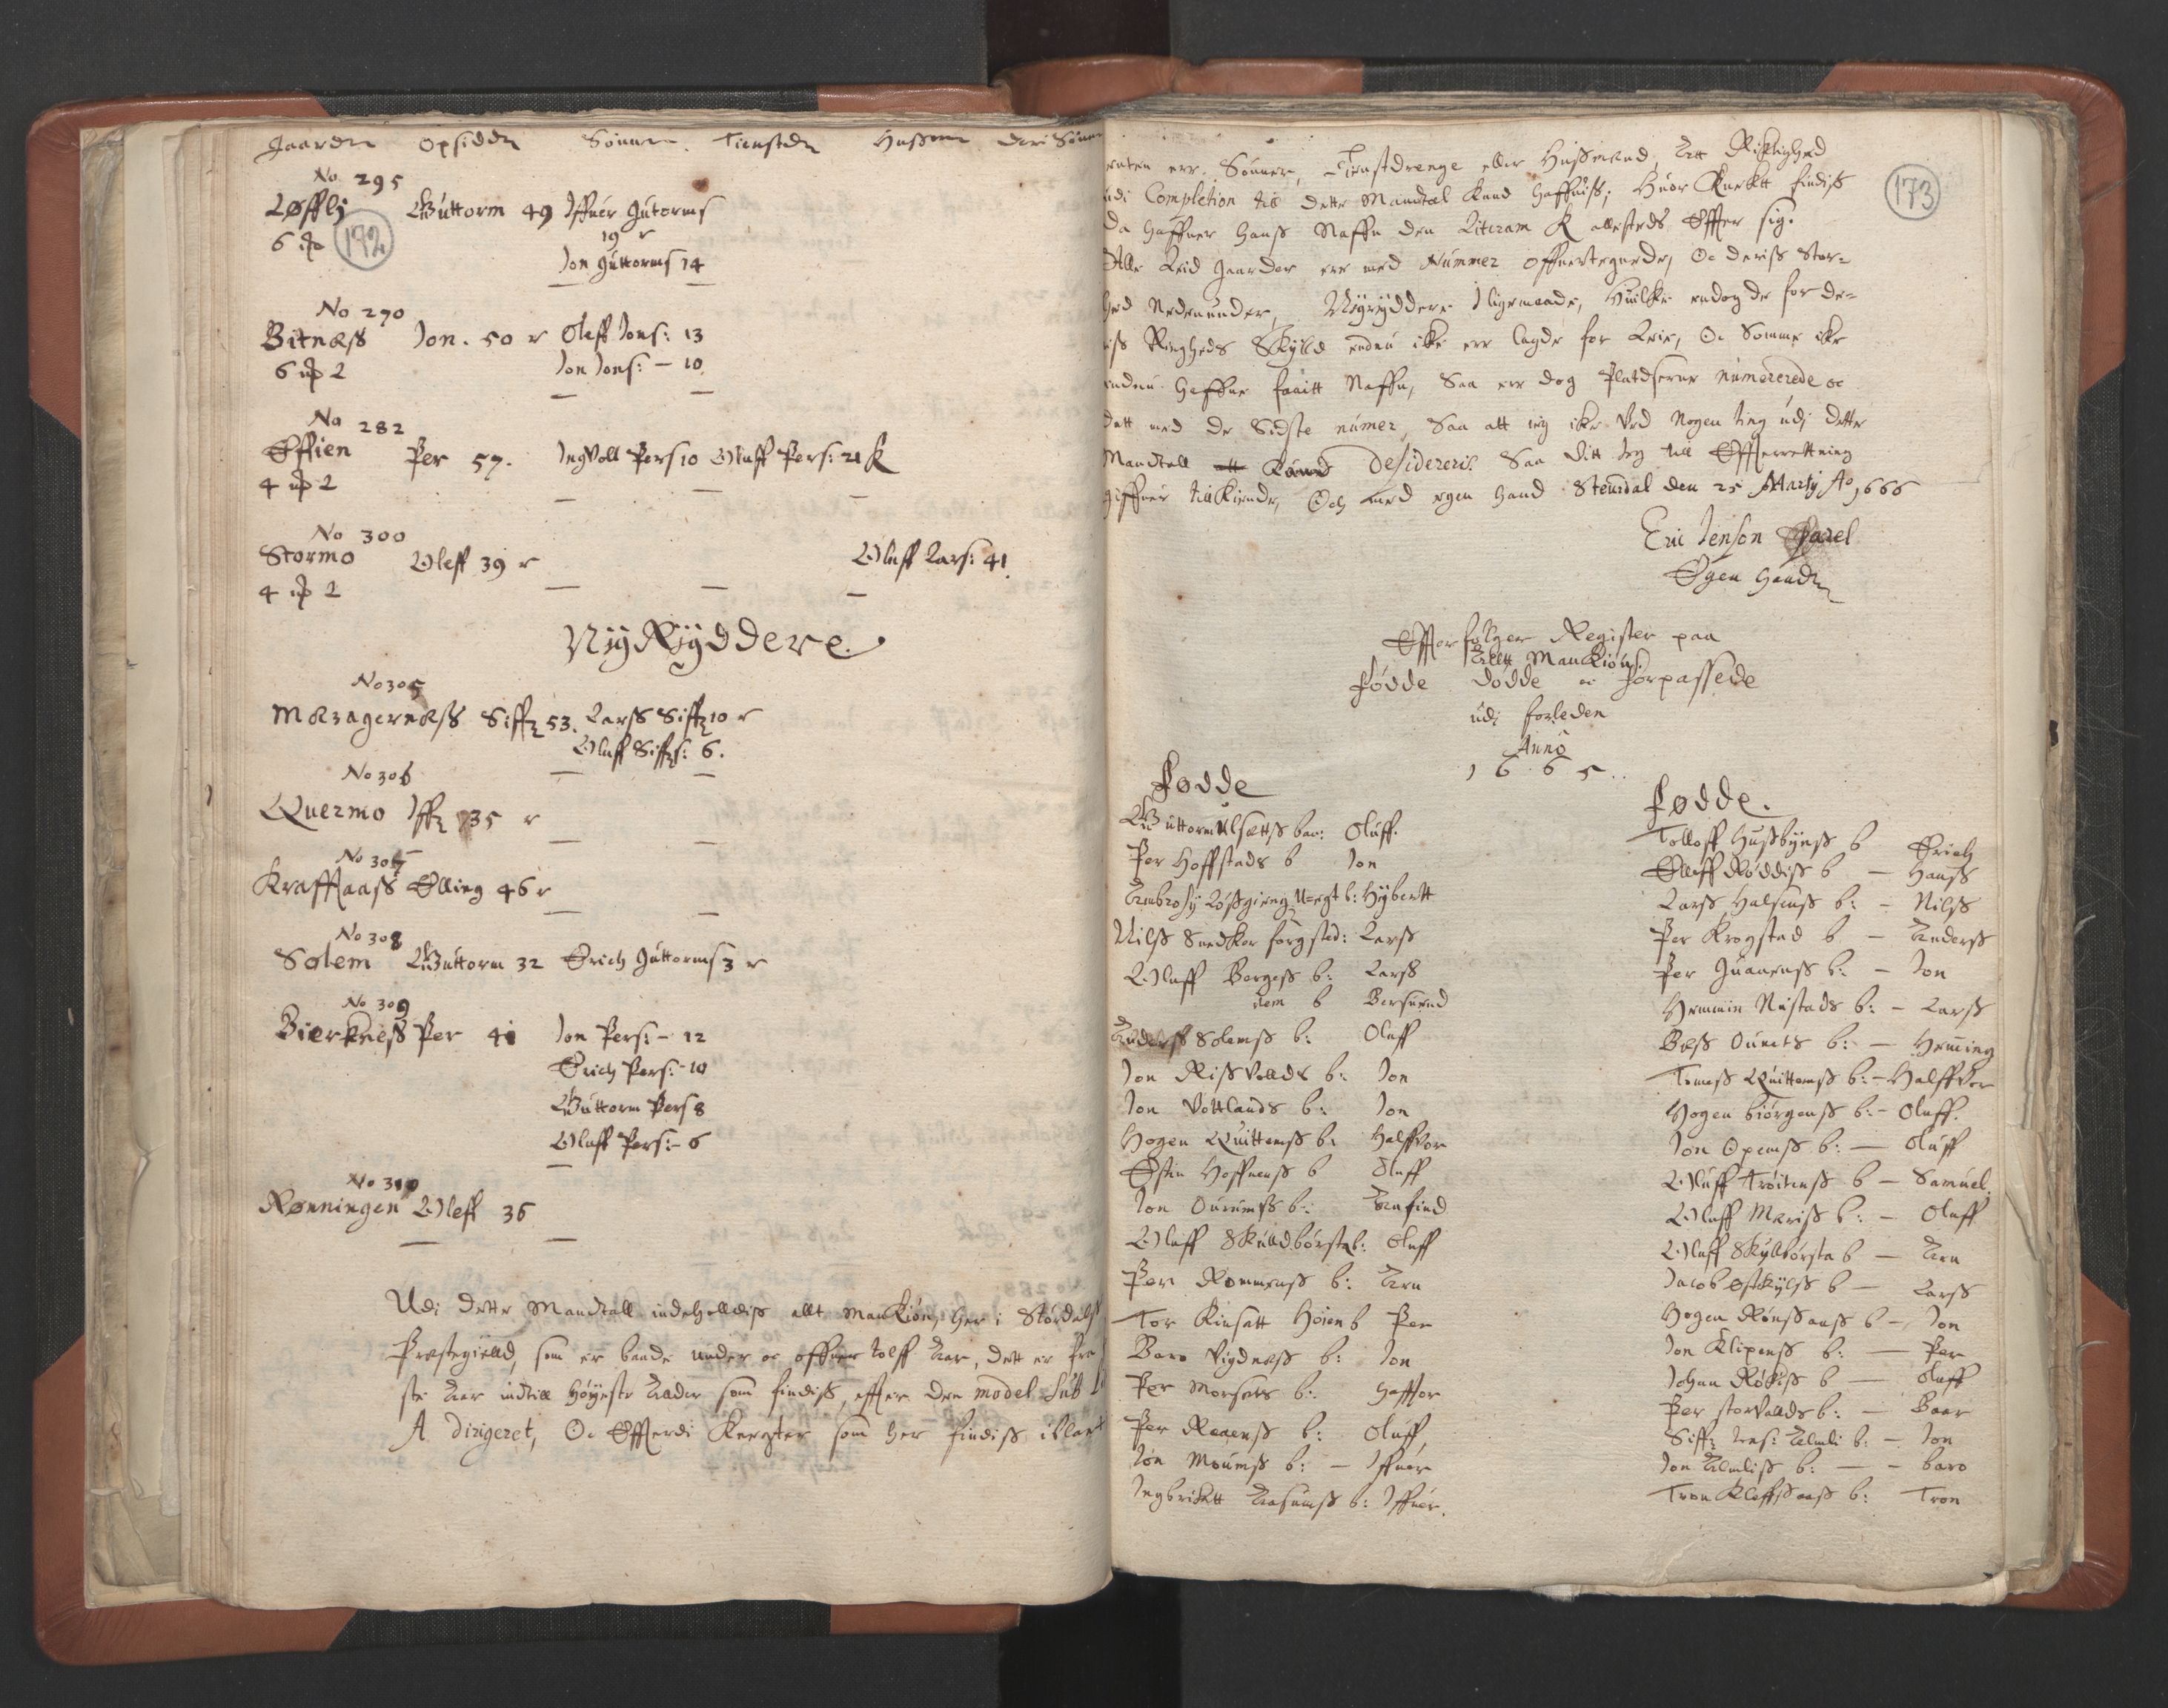 Gaarde Opsidde Sønner Tienstde Hussmn deris Sønner
No 295
Løffli Guttorm 49 Iffuer Gutorms
6 192 19 r
Jon Guttorms 14
No 290
Bitness Jon. 50 r Oleff Jons: 13
6 2 Jon Jons: - 10
No 282
Effien Per 57. Ingvoll Pers 10 Oluff Pers: 21 K
4 2
No 300
Stormo Oleff 39 r Oluff Lars: 41
4 2
NÿRÿddere
No 305
Maragerness Siff 53. Larss Siff 10 r
Oluff Siffs: 6.
No 306
Quermo Iff 35 r
No 307
Kraffsaass Elling 46 r
No 308
Solem Guttorm 32 Erich Guttorms 3 r
No 309
Bierkness Per 41 Jon Pers: - 12
Erich Pers: - 10
Guttorm Pers 8
Oluff Pers: - 6
No 310
Rønningen Oleff 36
Udi dette Mandtall indeholldis allt Mankiøn, her i Størdalss
Præstegield, som er baade under oc offuer tolff Aar, dett er fra
ste Aar indtill høÿeste Alder som findiss, effter den model Sub
A dirigeret, Oc Efferdi Knegter som her findiss iblant
173
enten err Sønner, Tienstdrenge eller Hussmænd, Att Rictighed
udi Completion til dette Mandtal kand haffuiss; Huor Knektt findiss
da haffuer hans Naffn den Literam K allesteds Effter sig.
Alle Leid gaarder err med Nummer offuertegnede, Oc deriss Stor=
hed Nedenunder, Nÿrÿddere i ligemaade, Huilke endog de for de=
riss Ringheds Skÿld endnu icke err lagde for Leie, Oc Somme icke
endnu haffue faaitt Naffn, Saa err dog Pladtserne numererede oc
dett med de Sidste numer, Saa att ieg icke Ved Nogen ting udi dette
Mandtall Kand desidereris. Saa ditt Jeg till Effterrettning
giffuer tilkiende, Och med egen Hand Steurdal den 25 Martÿ Ao 1666
Eric Jenson Parel
Egen Haand
Effterfølger Register paa
Allt Mankiøns
fødde dødde oc forpassede
udi forleden
Anno
1665.
Fødde
Guttorm Ulsætts bar: Oluff.
Per Hoffstads b Jon
Ambrosÿ b: Hÿbertt
Nilss Snedker Larss
Oluff Borgess b: Larss
dem b
Anderss Solemss b: Oluff
Jon Rissvolds b: Jon
Jon Vottlands b: Jon
Hogen Quittemss b: Halffvor
Østen Hoffuenss b Oluff
Jon b: Arnfind
Oluff Skulldbørsta b: Oluff
Per Rommenss b: Arn
Tor Kinsatt b Per
Baro Vigdness b: Jon
Per Morsets b: Haffor
Per b: Oluff
Jon Moumss b: - Iffuer
Ingbricktt Aasumss b: Iffuer.
Fødde.
Tolloff Hussbÿess b Erich
Elleff Røddiss b - Hanss
Larss b: - Nilss
Per Krogstad b - Anderss
Per b: - Jon
Hemmin Nestads b: - Larss
b: - Heming
Tomess Quittemss b: - Halffvor
Hogen biørgenss b: - Oluff.
Jon Opemss b: - Oluff
Oluff Trøitenss b - Samuel.
Oluff Mæriss b: - Oluff
Oluff Skÿllbørsta b - Arn
Jacob Østkÿlss b - Larss
Hogen b - Jon
Jon Klipenss b: - Per
Johan Røkiss b - Oluff
Per Storvolds b: - Baar
Siff Almli b: - Jon
Jon Almliss b: - baro
Tron Kleffsaass b: Tron